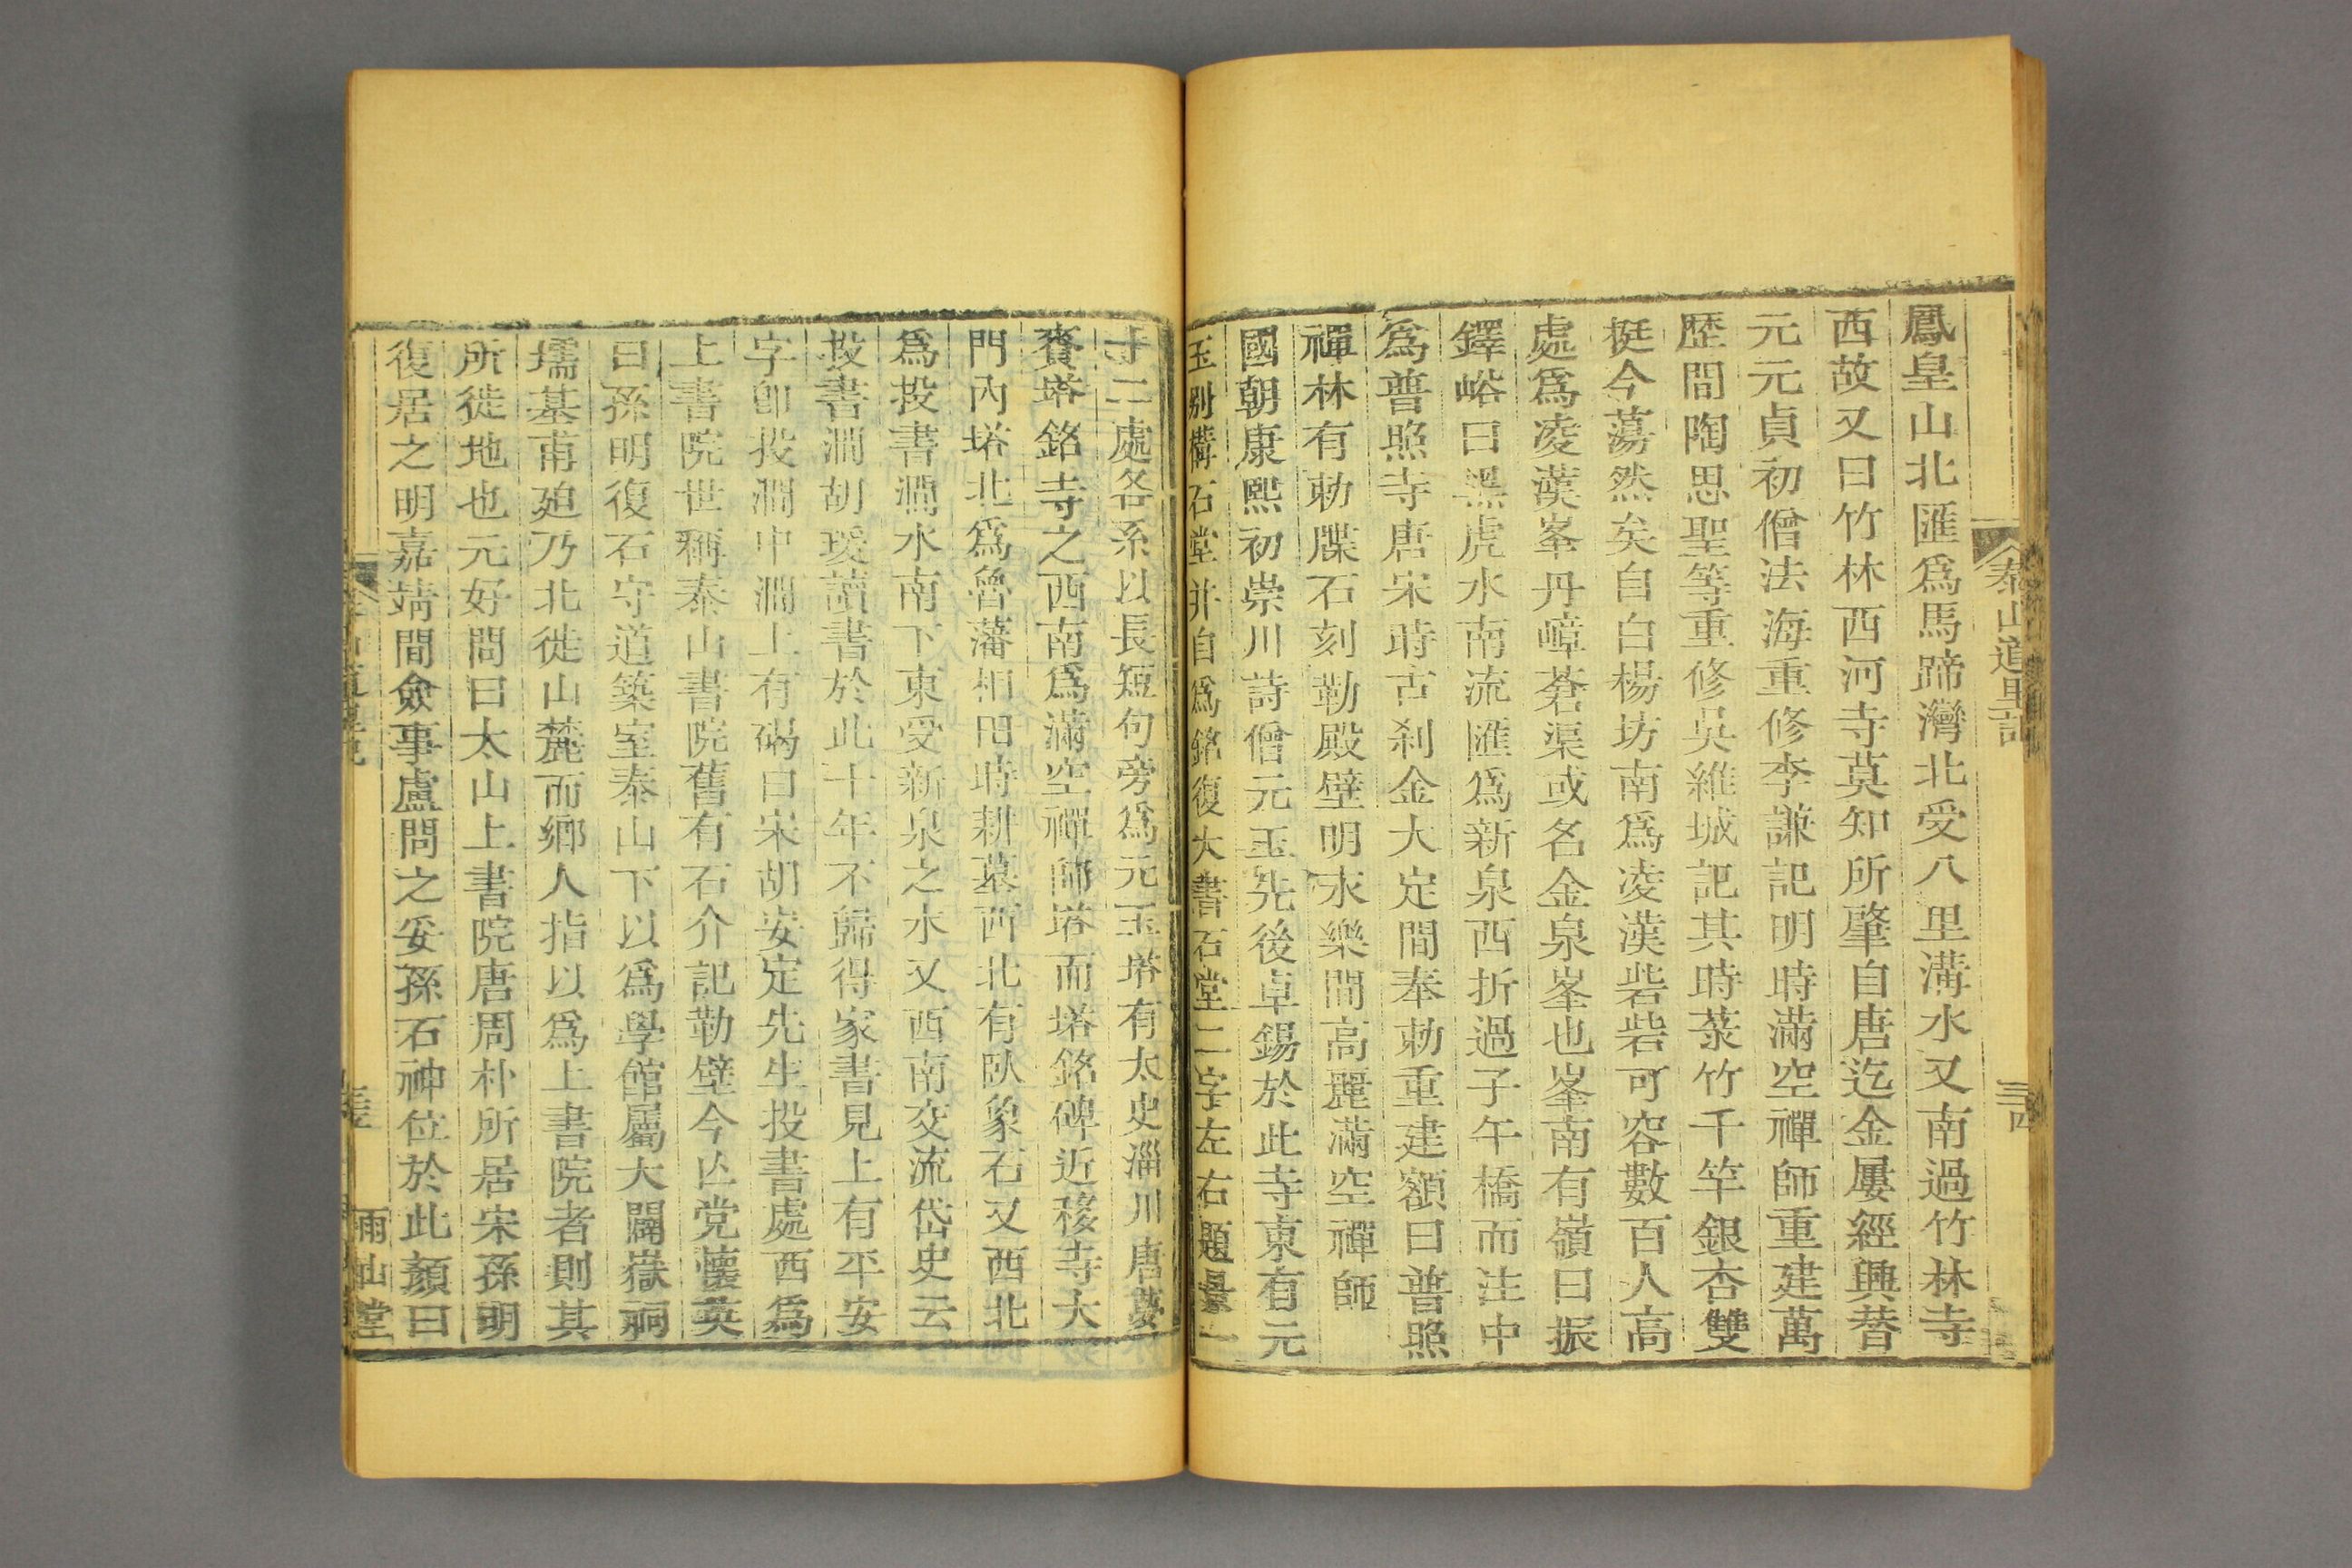 泰山道里記
三四
鳳皇山北匯爲馬蹄灣北受八里溝水又南過竹林寺
西故又曰竹林西河寺莫知所肇自唐迄金屢經興替
元元貞初僧法海重修李謙記明時滿空禪師重建萬
歷間陶思聖等重修吳維城記其時菉竹千竿銀杏雙
挺今蕩然矣自白楊坊南爲凌漢砦砦可容數百人高
處爲凌漢峯丹嶂蒼渠或名金泉峯也峯南有嶺曰振
鐸峪曰黑虎水南流匯爲新泉西折過子午橋而注中
爲普照寺唐宋時古刹金大定間奉勅重建額曰普照
禪林有勅牒石刻勒殿壁明永樂間高麗滿空禪師
國朝康熙初崇川詩僧元玉先後卓錫於此寺東有元
玉别構石堂并自爲銘復大書石堂二字左右題景一
十二處各系以長短句旁爲元玉塔有太史淄川唐夢
賚塔銘寺之西南爲滿空禪師塔而塔銘碑近移寺大
門內塔北爲魯藩相田時耕墓西北有臥象石又西北
爲投書澗水南下東受新泉之水又西南交流岱史云
投書澗胡瑗讀書於此十年不歸得家書見上有平安
字卽投澗中澗上有碣曰宋胡安定先生投書處西爲
上書院世稱泰山書院舊有石介記勒壁今亾党懷英
曰孫明復石守道築室泰山下以爲學館屬大闢嶽祠
壖基甫廹乃北徙山麓而鄉人指以爲上書院者則其
所徙地也元好問曰太山上書院唐周朴所居宋孫明
復居之明嘉靖間僉事盧問之妥孫石神位於此顏曰
泰山道里記
雨山堂